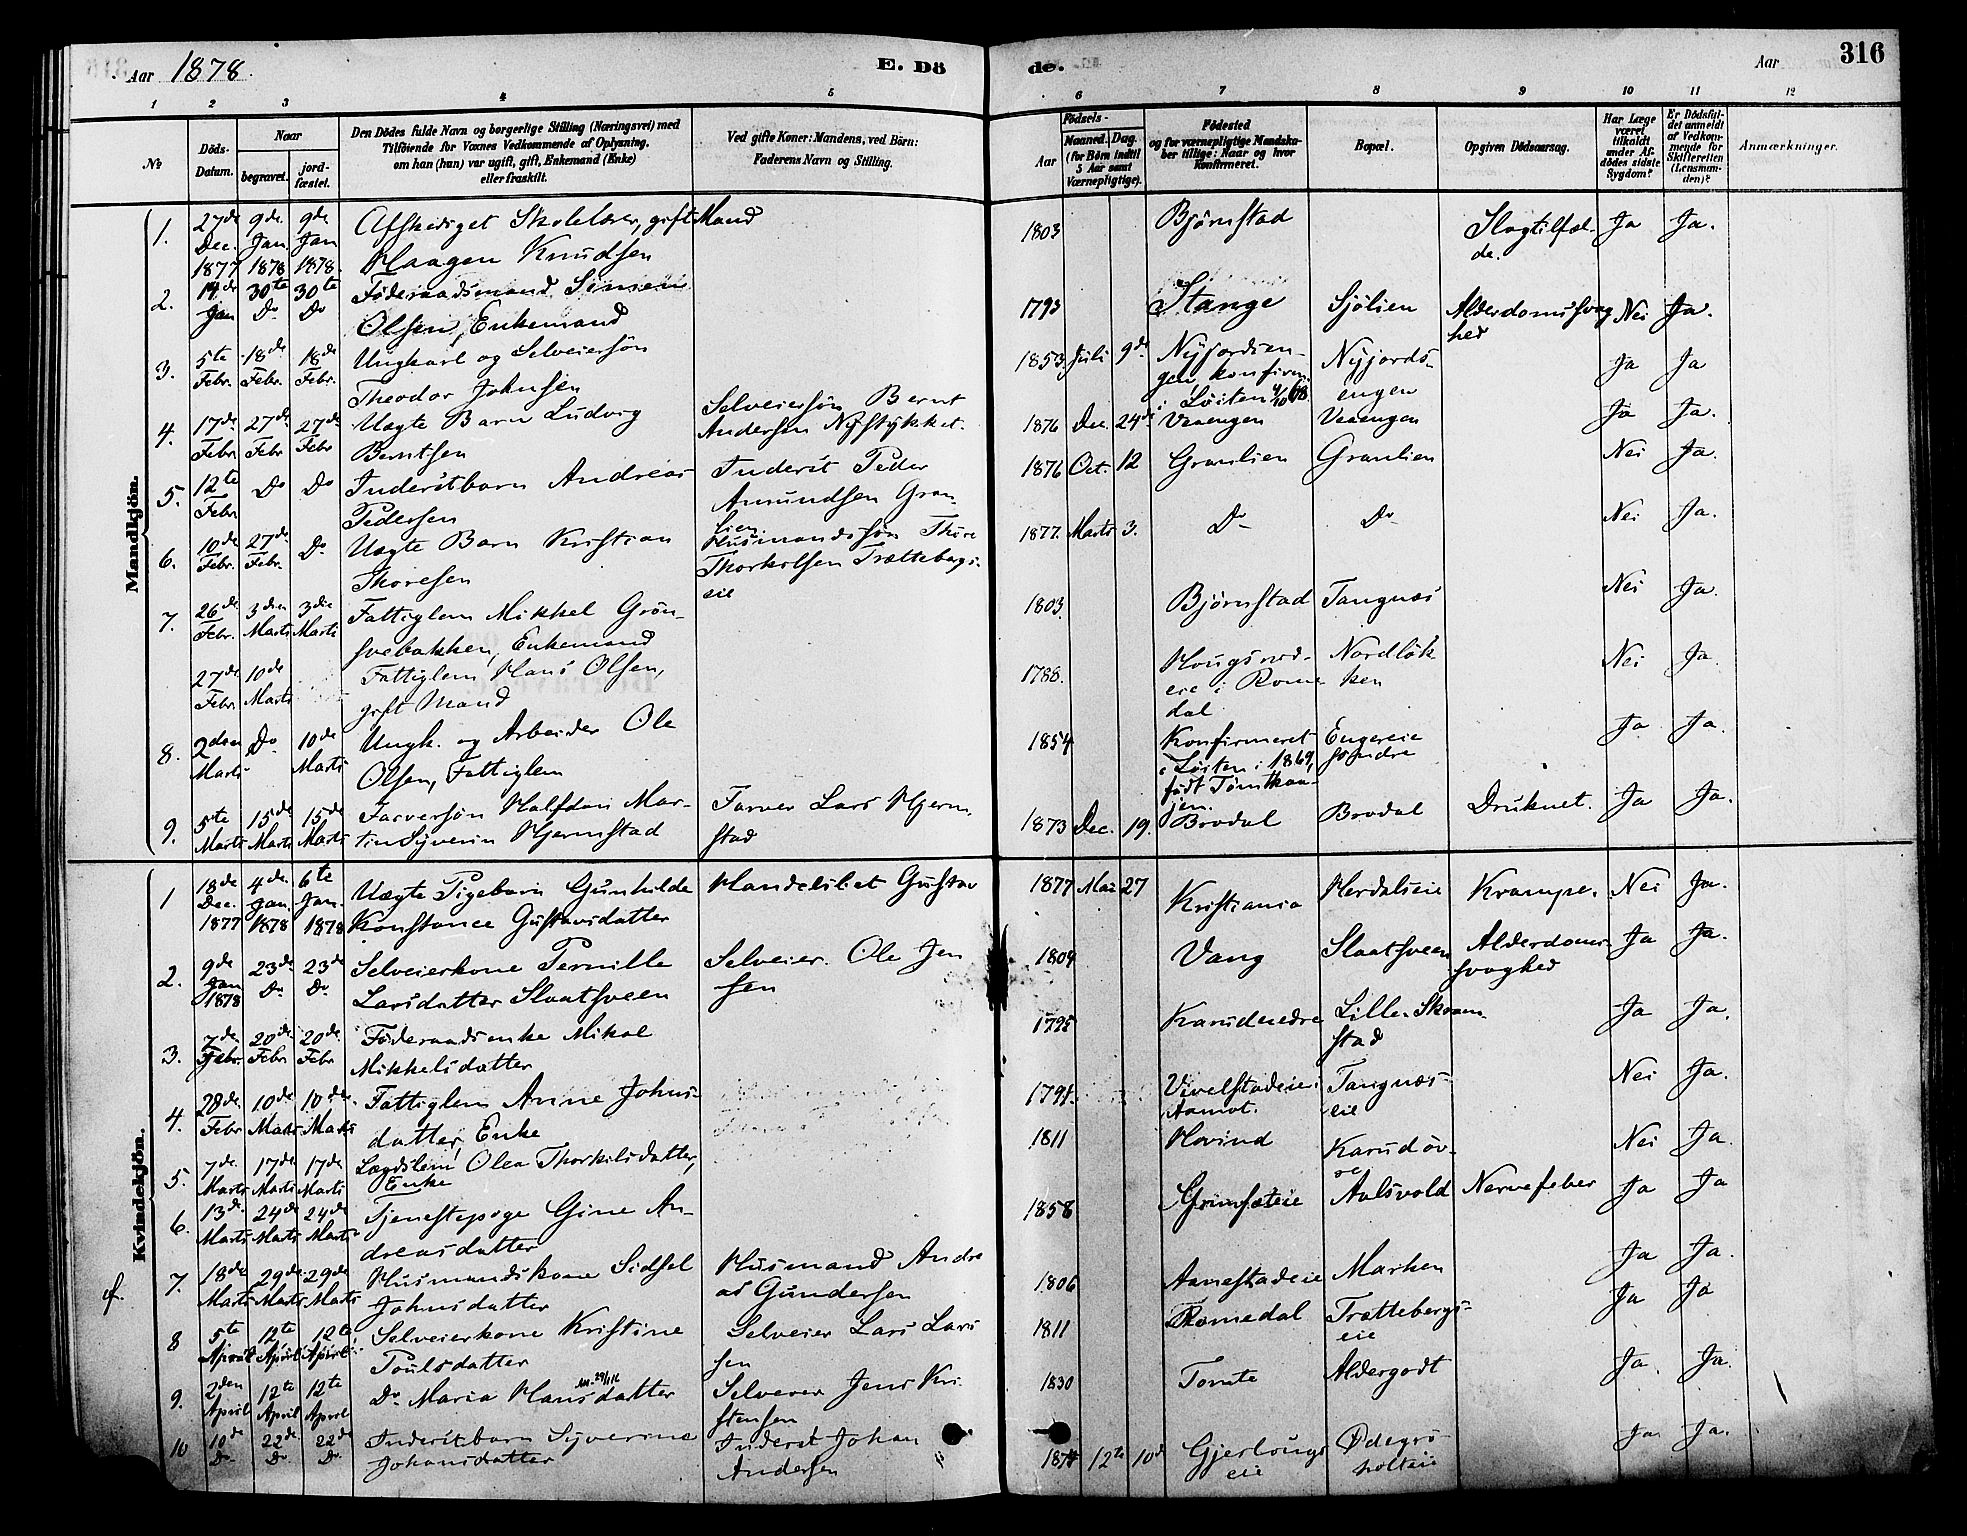 Aar 1878. E. Dö de. Aar 316
1 2 3 4 5 6 7 8 9 10 11 12
№ Döds-Datum. Naar begravet. jordfæstet. Den Dödes fulde Navn og borgerlige Stilling (Næringsvei) med Tilföiende for Voxnes Vedkommende af Oplysning, om han (hun) var ugift, gift, Enkemand (Enke) eller fraskilt. Ved gifte Koner: Mandens, ved Börn: Faderens Navn og Stilling. Födsels- Aar Maaned. Dag. (for Börn indtil 5 Aar samt Værnepligtige). Födested og for værnepligtige Mandskaber tillige: Naar og hvor Konfirmeret. Bopæl. Opgiven Dödsaarsag. Har Læge været tilkaldt under Afdödes sidste Sygdom? Er Dödsfaldet anmeldt af Vedkommende for Skifteretten (Lensmanden)? Anmærkninger.
Mandkjön.
1. 27de Dec. 1877 9de Jan. 1878 9de Jan 1878. Afskediget Skolelærer, gift Mand Haagen Knudsen 1803 Bjørnstad Slagtilfælde. Ja Ja.
2. 14de Jan 30te Do 30te Do Føderaadsmand Simen Olsen, Enkemand 1793 Stange Sjølien Alderdomssvaghed Nei Ja.
3. 5te Febr. 18de Febr. 18de Febr. Ungkarl og Selveiersøn Theodor Johnsen 1853 Juli 9de Nyjordsengen, konfirm. i Løiten Nyjordsengen Ja Ja
4. 17de Febr. 27de Febr 27de Febr Uægte Barn Ludvig Berntsen Selveiersøn Bernt Andersen Nystykket. 1876 Dec. 24de Vaaengen Vaaengen Ja Ja.
5. 12te Febr Do Do Inderstbarn Andreas Pedersen Inderst Peder Amundsen Granlien 1876 Oct. 12 Granlien Granlien Nei Ja.
6. 10de Febr. 27de Febr. Do Uægte Barn Kristian Thoresen Husmandssøn Thore Thorkelsen Trættebergseie 1877. Marts 3. Do Do Nei Ja.
7. 26de Febr. 3die Marts 3die Marts Fattiglem Mikkel Grønsvebakken, Enkemand 1803. Bjørnstad Tangnæs Nei Ja.
27de Febr. 10de Marts Fattiglem Hans Olsen, gift Mand 1788. eie i Romedal Nordløkken Nei Ja.
8. 2den Marts Do 10de Marts Ungk. og Arbeider Ole Olsen, Fattiglem 1854 Konfirmeret i Løiten i 1869, født Tomtkaajen. Engereie søndre Ja Ja.
9. 5te Marts 15de Marts 15de Marts Farversøn Halfdan Martin Syverin Hjermstad Farver Lars Hjermstad 1873 Dec. 19. Brodal Brodal Druknet. Ja Ja.
Kvindekjön.
1 18de Dec. 1877 4de Jan. 1878 6te Jan. 1878 Uægte Pigebarn Gunhilde Konstance Gustavsdatter Handelsbet Gustav 1877 Mai 27 Kristiania Herdalseie Krampe. Nei Ja.
2. 9de Jan 1878 23de Do 23de Do Selveierkone Pernille Larsdatter Slaatsveen Selveier Ole Jensen 1804 Vang Slaatsveen Alderdomssvaghed Ja Ja.
3. 7de Febr. 20de Febr 20de Febr Føderaadsenke Mikal Mikkelsdatter 1795 Karudnedre Lille-Skramstad Ja Ja.
4. 28de Febr 10de Marts 10de Marts Fattiglem Anne Johnsdatter, Enke 1791. Vivelstadeie i Aamot. Tangnæseie Nei Ja.
5. 7de Marts 17de Marts 17de Marts Lægdslem Olea Thorkilsdatter, Enke 1811 Hovind Karudøvre Nei Ja.
6. 13de Marts 24de Marts 24de Marts Tjenestepige Gine Andreasdatter 1858 Grimsæteie Aalsvold Nervefeber Ja Ja
f. 7. 18de Marts 29de Marts 29de Marts Husmandskone Sidsel Johnsdatter Husmand Andreas Gundersen 1806 Aanestadeie Marken Ja Ja.
8 5te April 12te April 12te April Selveierkone Kristine Poulsdatter Selveier Lars Larssen 1811 Romedal Trættebergseie Ja Ja
9. 2den April 12te April 12te April Do Maria Hansdatter Selveier Jens Kristensen 1830 Tomte Aldergodt Ja. Ja.
10 10de Do 22de Do 22de Do Inderstbarn Syverine Johansdatter Inderst Johan Andersen 1874 12te 10de Gjerlougseie Ødegrsholteie Ja Ja.